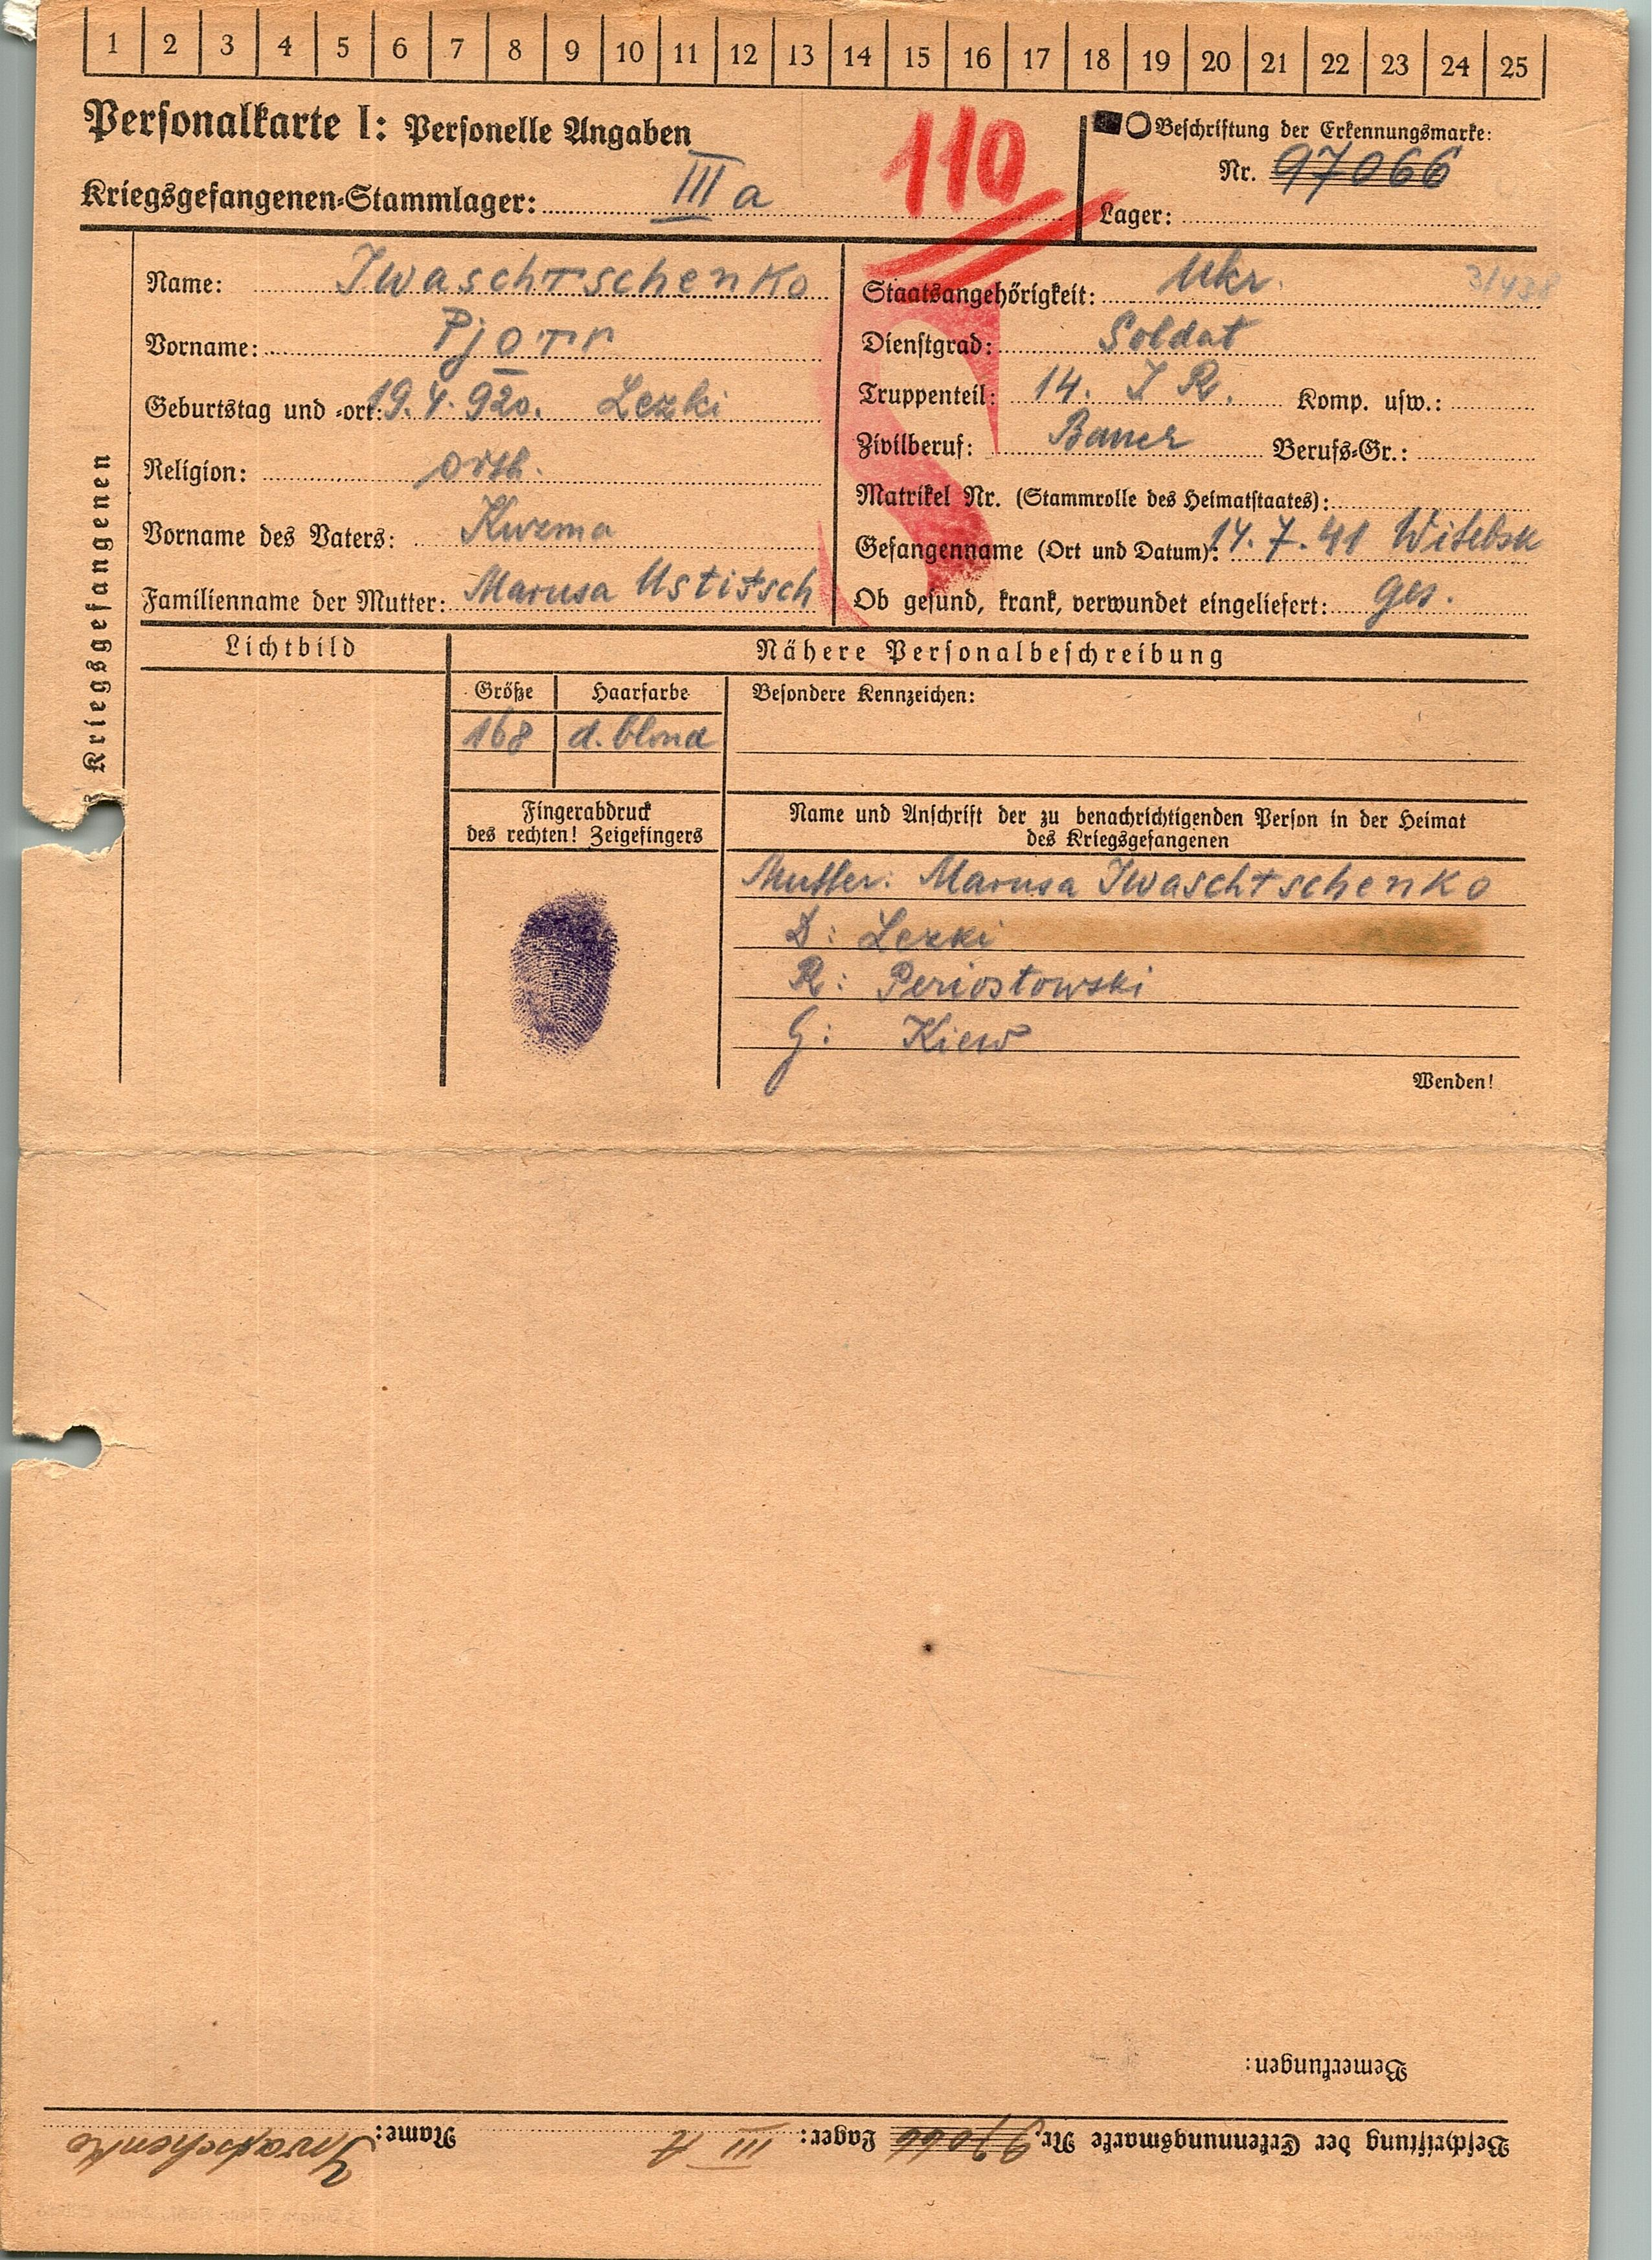 1 2 3 4 5 6 7 8 9 10 11 12 13 14 15 16 17 18 19 20 21 22 23 24 25
Personalkarte I: Personelle Angaben
110
Beschriftung der Erkennungsmarke:
Nr. 97066
Kriegsgefangenen-Stammlager: III a
Lager:
Kriegsgefangenen
Name: Iwaschtschenko
Vorname: Pjotr
Geburtstag und -ort: 19.4.920. Lezki
Religion: orth.
Vorname des Vaters: Kuzma
Familienname der Mutter: Marusa Ustitsch
Staatsangehörigkeit: Ukr.
Dienstgrad: Soldat
Truppenteil: 14. I R. Komp. usw.:
Zivilberuf: Bauer Berufs-Gr.:
Matrikel Nr. (Stammrolle des Heimatstaates):
Gefangennahme (Ort und Datum): 14.7.41 Witebsk
Ob gesund, krank, verwundet eingeliefert: ges.
Lichtbild
Nähere Personalbeschreibung
Größe Haarfarbe Besondere Kennzeichen:
168 d. blond
Fingerabdruck
des rechten! Zeigefingers
Name und Anschrift der zu benachrichtigenden Person in der Heimat
des Kriegsgefangenen
Mutter: Marusa Iwaschtschenko
D: Lezki
R: Periostowski
G: Kiew
Wenden!
Bemerkungen:
Beschriftung der Erkennungsmarke Nr. 97066 Lager: III A Name: Iwaschenko